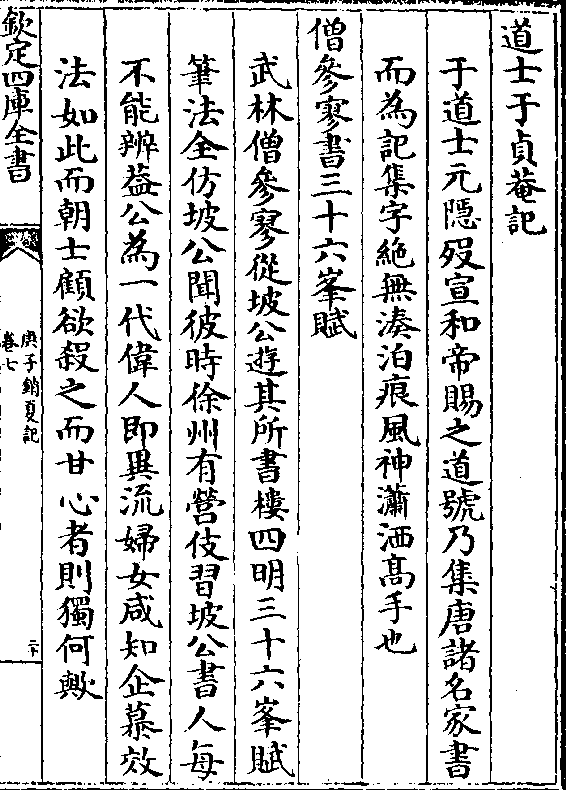 道士于貞菴記
于道士元隱歿宣和帝賜之道號乃集唐諸名家書
而為記集字絶無湊泊痕風神瀟洒髙手也
僧參寥書三十六峯賦
武林僧參寥從坡公遊其所書樓四明三十六峯賦
筆法全仿坡公聞彼時徐州有營伎習坡公書人每
不能辨葢公為一代偉人即異流婦女咸知企慕效
法如此而朝士顧欲殺之而甘心者則獨何歟
欽定四庫全書
庚子銷夏記
卷七